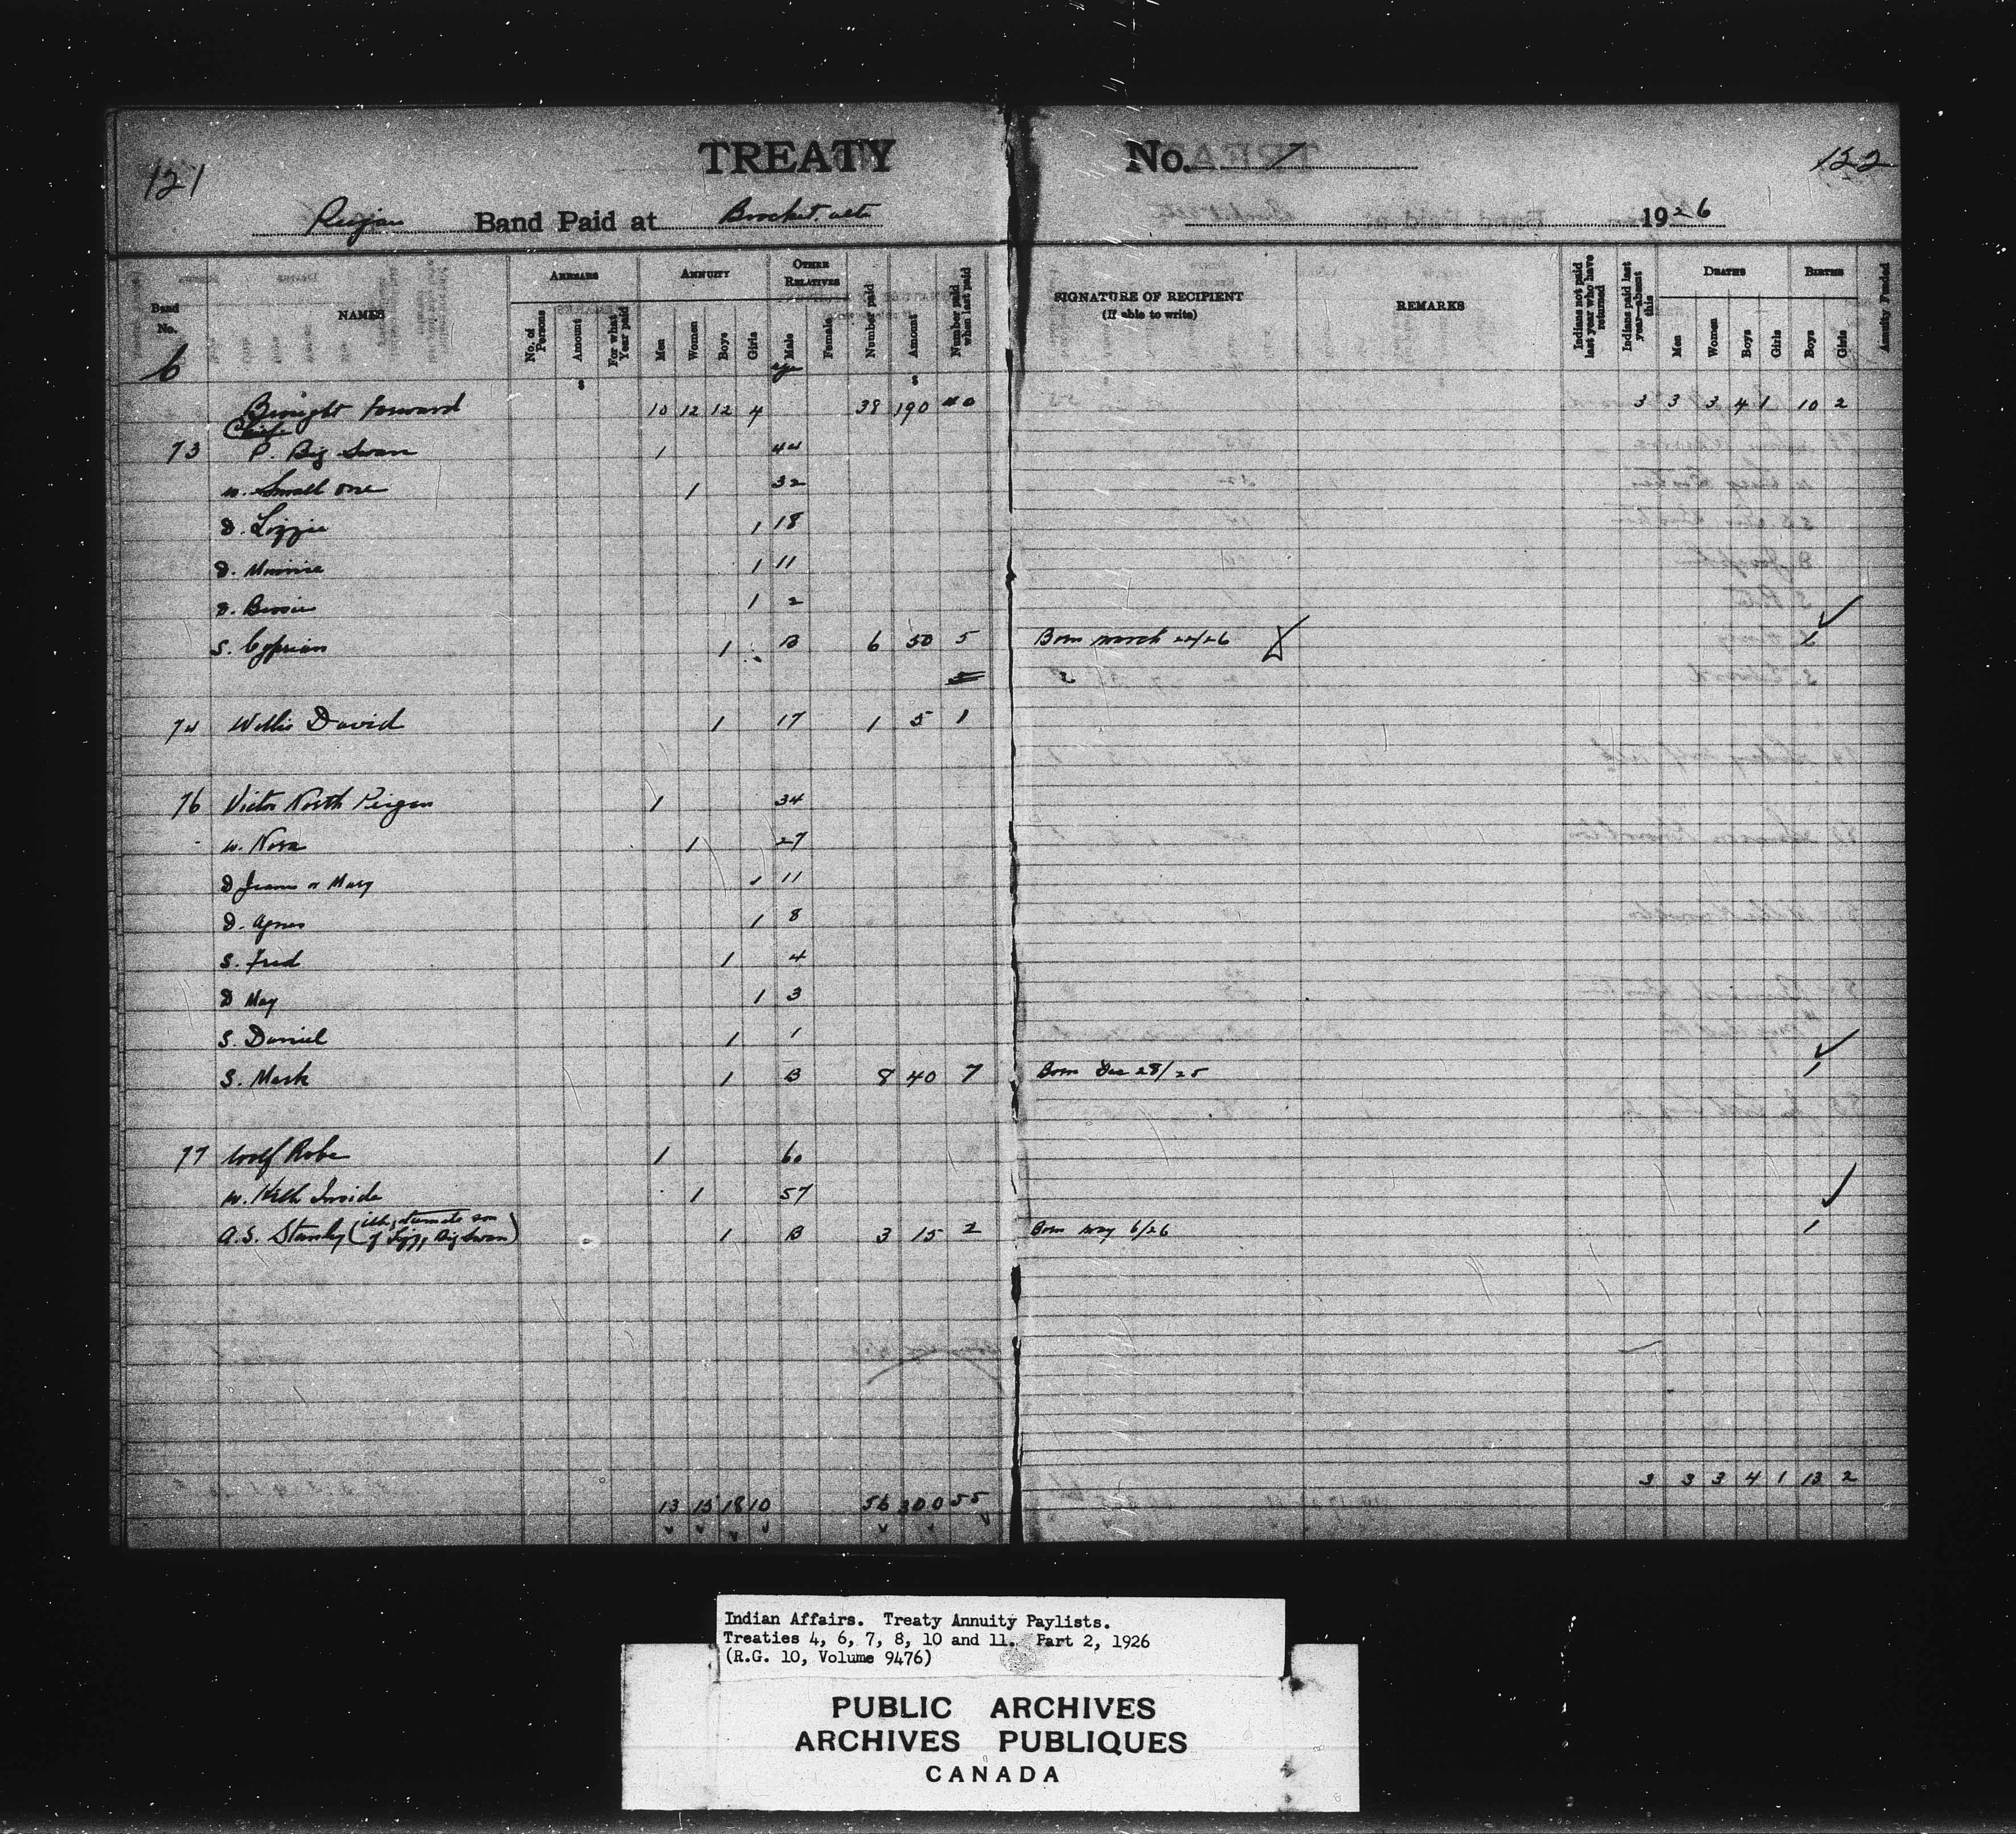 TREATY No. 7
121
122
Band Paid at Brocket. Alta 1926
Band No.
NAMES
ARREARS
No. of Persons
Amount
For what Year paid
ANNUITY
Men
Women
Boys
Girls
OTHER RELATIVES
Male
Female
Number paid
Amount
Number paid when last paid
SIGNATURE OF RECIPIENT
(If able to write)
REMARKS
Indians not paid last year who have returned
Indians paid last year—absent this
DEATHS
Men
Women
Boys
Girls
BIRTHS
Boys
Girls
Annuity Funded
6 $ age $
Brought forward 10 12 12 4 38 190 40 3 3 3 4 1 10 2
Chief
73 P. Big Swan 1 44
w. Small one 1 32
D. Lizzie 1 18
D. Minnie 1 11
D. Bessie 1 2
S. Cyprian 1 B 6 50 5 Born March 22/26
74 Willie David 1 17 1 5 1
76 Victor North Peigan 1 34
w. Nora 1 27
D or Mary 1 11
D. Agnes 1 8
S. Fred 1 4
D May 1 3
S. Daniel 1 1
S. Mark 1 B 8 40 7 Born Dec 28/25 1
77 Wolf Robe 1 60
w. Kills Inside 1 57
A.S. Stanley (illegitimate son
of Lizzy Big Swan) 1 B 3 15 2 Born May 6/26 1
3 3 3 4 1 13 2
13 15 18 10 56 300 55
Indian Affairs. Treaty Annuity Paylists.
Treaties 4, 6, 7, 8, 10 and 11. Part 2, 1926
(R.G. 10, Volume 9476)
PUBLIC ARCHIVES
ARCHIVES PUBLIQUES
CANADA